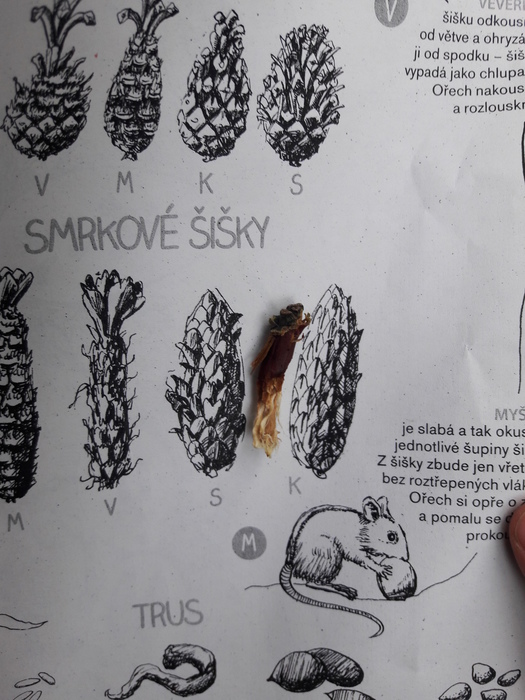 V
VEVERK
šišku odkous
od větve a ohryzá
ji od spodku – šiš
vypadá jako chlupa
Ořech nakous
a rozlouskn
V M K S
SMRKOVÉ ŠIŠKY
M V S K
MYŠ
je slabá a tak okus
jednotlivé šupiny ši
Z šišky zbude jen vřet
bez roztřepených vlák
Ořech si opře o z
a pomalu se
proko
M
TRUS